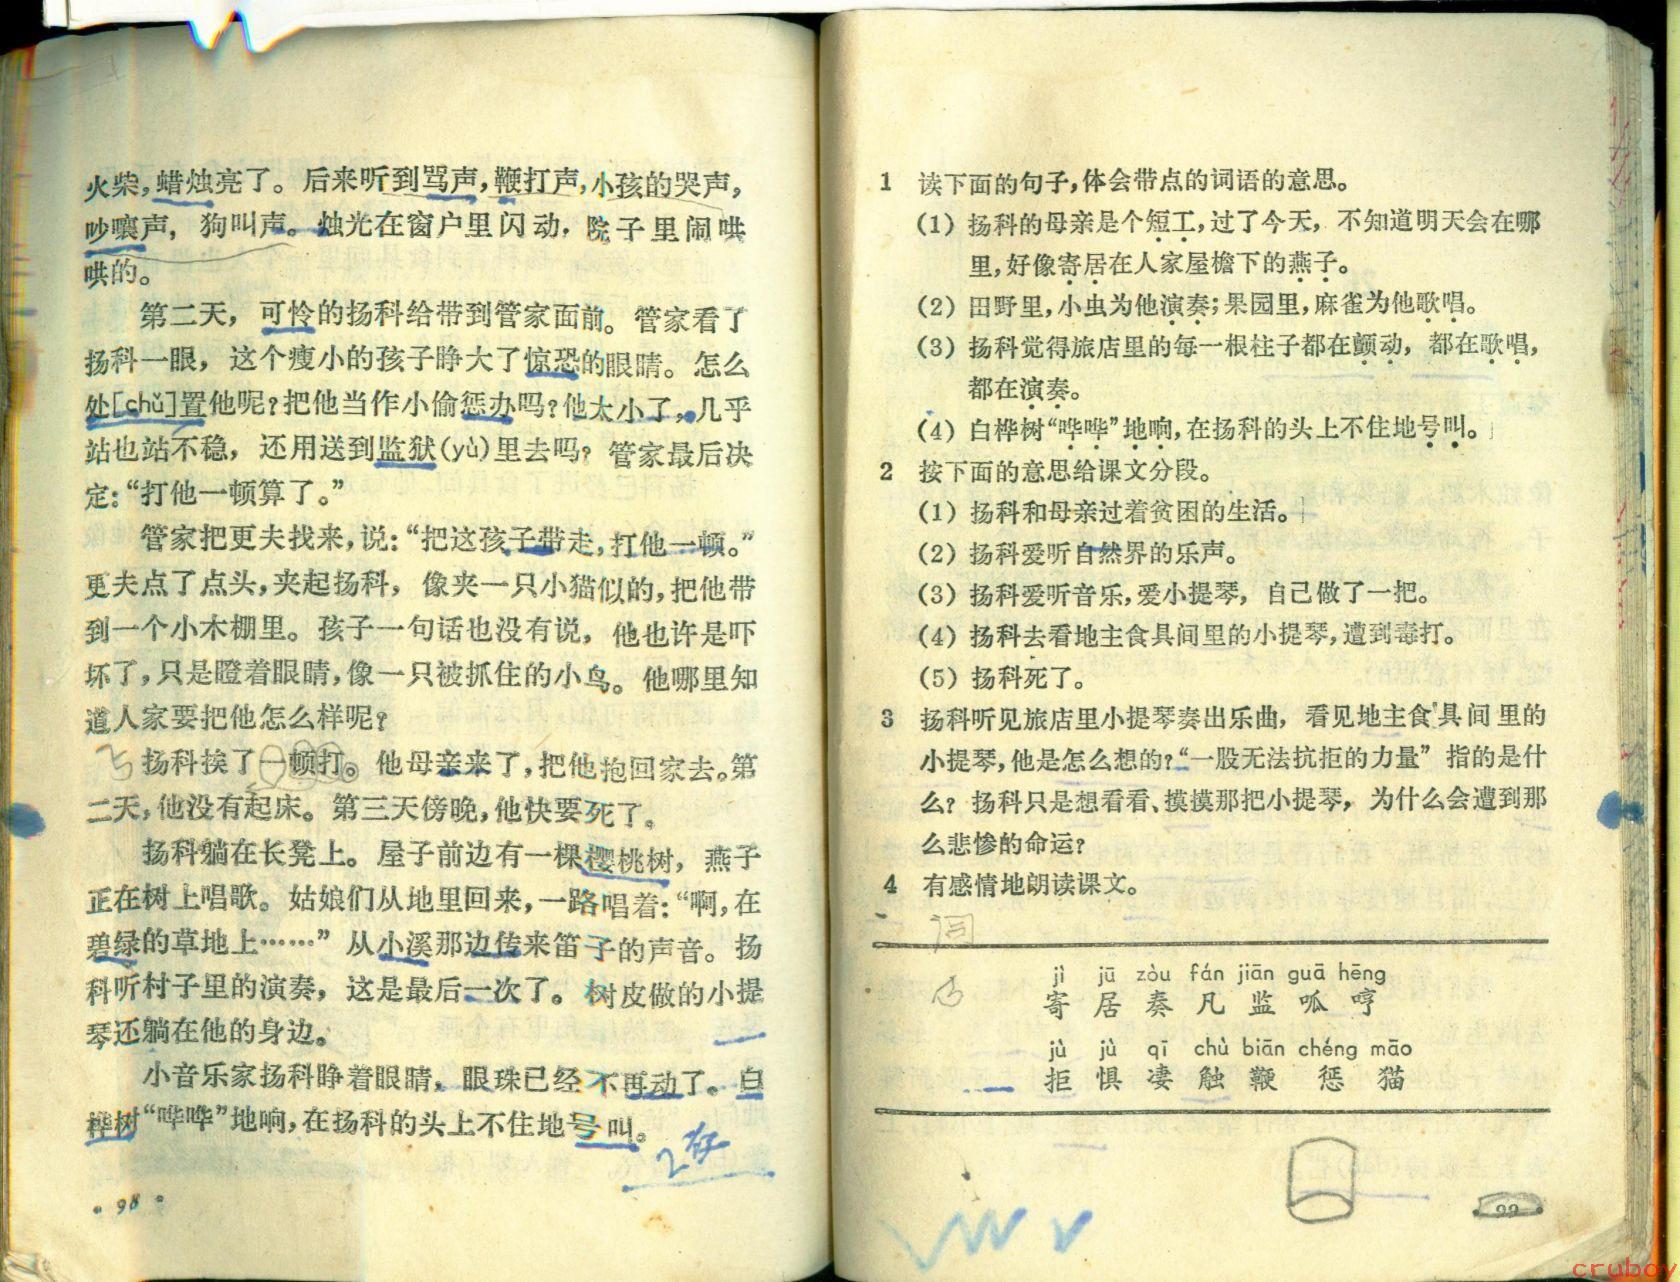 火柴，蜡烛亮了。后来听到骂声，鞭打声，小孩的哭声，
吵嚷声，狗叫声。烛光在窗户里闪动，院子里闹哄
哄的。
第二天，可怜的扬科给带到管家面前。管家看了
扬科一眼，这个瘦小的孩子睁大了惊恐的眼睛。怎么
处[chǔ]置他呢？把他当作小偷惩办吗？他太小了，几乎
站也站不稳，还用送到监狱(yù)里去吗？管家最后决
定：“打他一顿算了。”
管家把更夫找来，说：“把这孩子带走，打他一顿。”
更夫点了点头，夹起扬科，像夹一只小猫似的，把他带
到一个小木棚里。孩子一句话也没有说，他也许是吓
坏了，只是瞪着眼睛，像一只被抓住的小鸟。他哪里知
道人家要把他怎么样呢？
扬科挨了一顿打。他母亲来了，把他抱回家去。第
二天，他没有起床。第三天傍晚，他快要死了。
扬科躺在长凳上。屋子前边有一棵樱桃树，燕子
正在树上唱歌。姑娘们从地里回来，一路唱着：“啊，在
碧绿的草地上……”从小溪那边传来笛子的声音。扬
科听村子里的演奏，这是最后一次了。树皮做的小提
琴还躺在他的身边。
小音乐家扬科睁着眼睛，眼珠已经不再动了。白
桦树“哗哗”地响，在扬科的头上不住地号叫。
·98·
1 读下面的句子，体会带点的词语的意思。
(1) 扬科的母亲是个短工，过了今天，不知道明天会在哪
里，好像寄居在人家屋檐下的燕子。
(2) 田野里，小虫为他演奏；果园里，麻雀为他歌唱。
(3) 扬科觉得旅店里的每一根柱子都在颤动，都在歌唱，
都在演奏。
(4) 白桦树“哗哗”地响，在扬科的头上不住地号叫。
2 按下面的意思给课文分段。
(1) 扬科和母亲过着贫困的生活。
(2) 扬科爱听自然界的乐声。
(3) 扬科爱听音乐，爱小提琴，自己做了一把。
(4) 扬科去看地主食具间里的小提琴，遭到毒打。
(5) 扬科死了。
3 扬科听见旅店里小提琴奏出乐曲，看见地主食具间里的
小提琴，他是怎么想的？“一股无法抗拒的力量”指的是什
么？扬科只是想看看、摸摸那把小提琴，为什么会遭到那
么悲惨的命运？
4 有感情地朗读课文。
词
jì jū zòu fán jiān guā hēng
寄 居 奏 凡 监 呱 哼
jù jù qī chù biān chéng māo
拒 惧 凄 触 鞭 惩 猫
99
cruboy